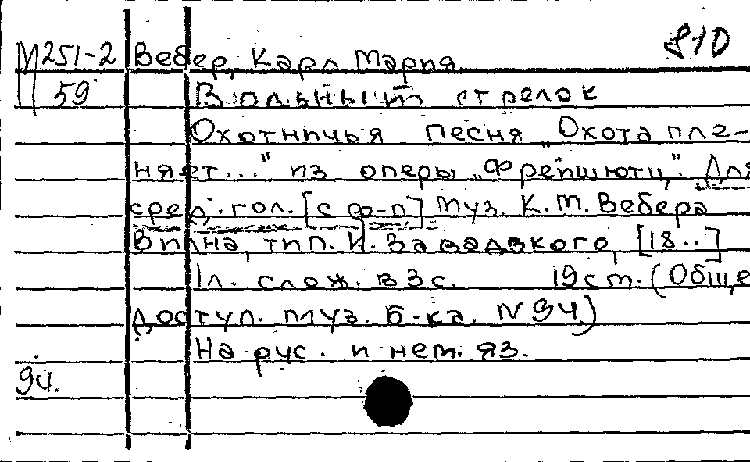 М251-2 Вебер, Карл Мария 810
59 Вольный стрелок
Охотничья песня „Охота пле-
няет..." из оперы „Фрейшютц". Для
сред. гол. [с ф-п] Муз. К. М. Вебера
Вильна, тип. И. Завадзкого, [18..]
1л. слож. в 3с. 19 ст. (Обще
доступ. муз. б-ка. N 94)
На рус. и нем. яз.
94.